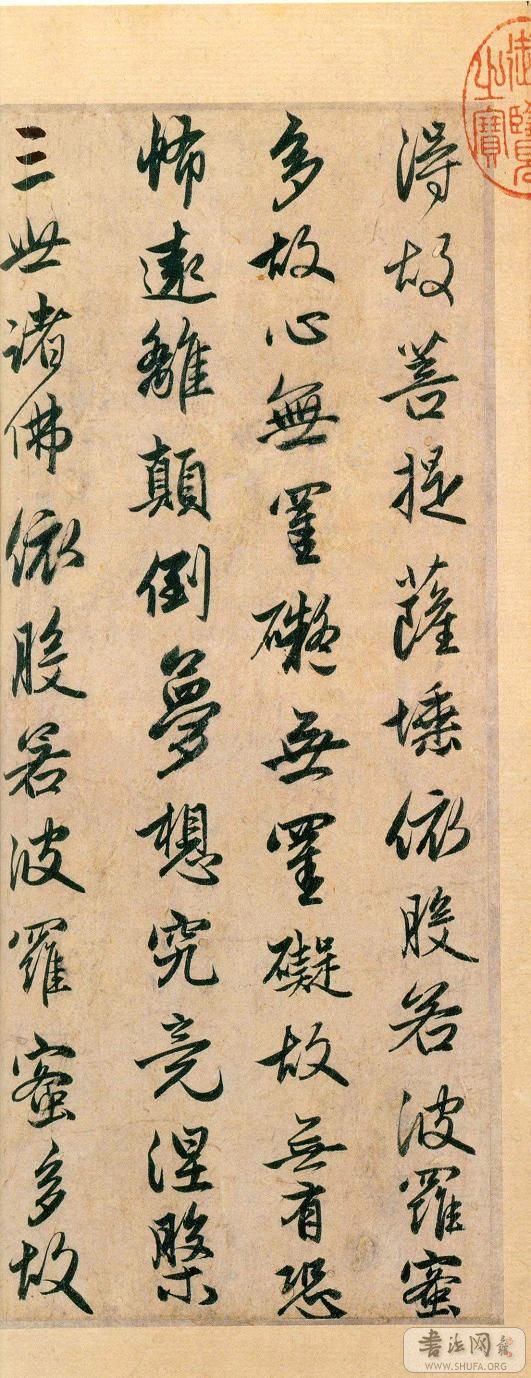 得故菩提薩埵依般若波羅蜜
多故心無罣礙無罣礙故無有恐
怖遠離顛倒夢想究竟涅槃
三世諸佛依般若波羅蜜多故
御覽之寶
書法网
WWW.SHUFA.ORG